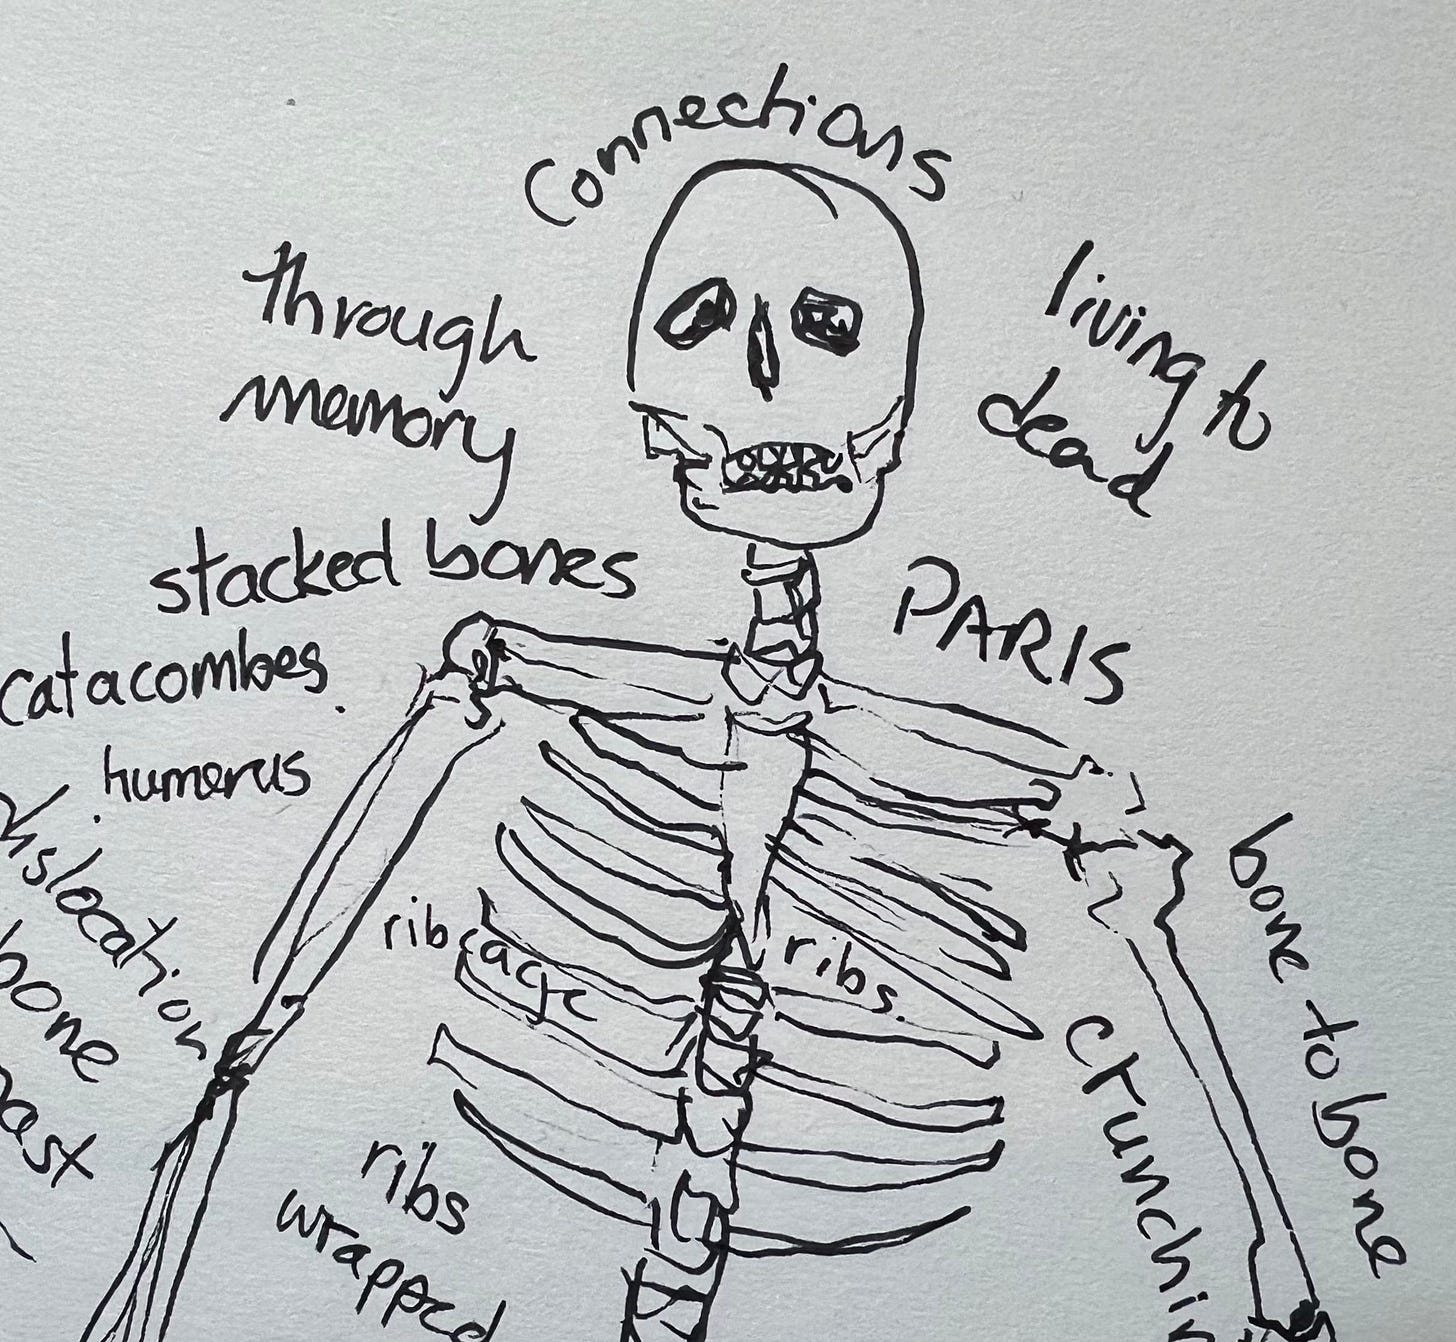 Connections
through
memory
living to
dead
stacked bones
PARIS
catacombes
humerus
dislocation
bone
ribcage
ribs.
bone to bone
ribs
wrapped